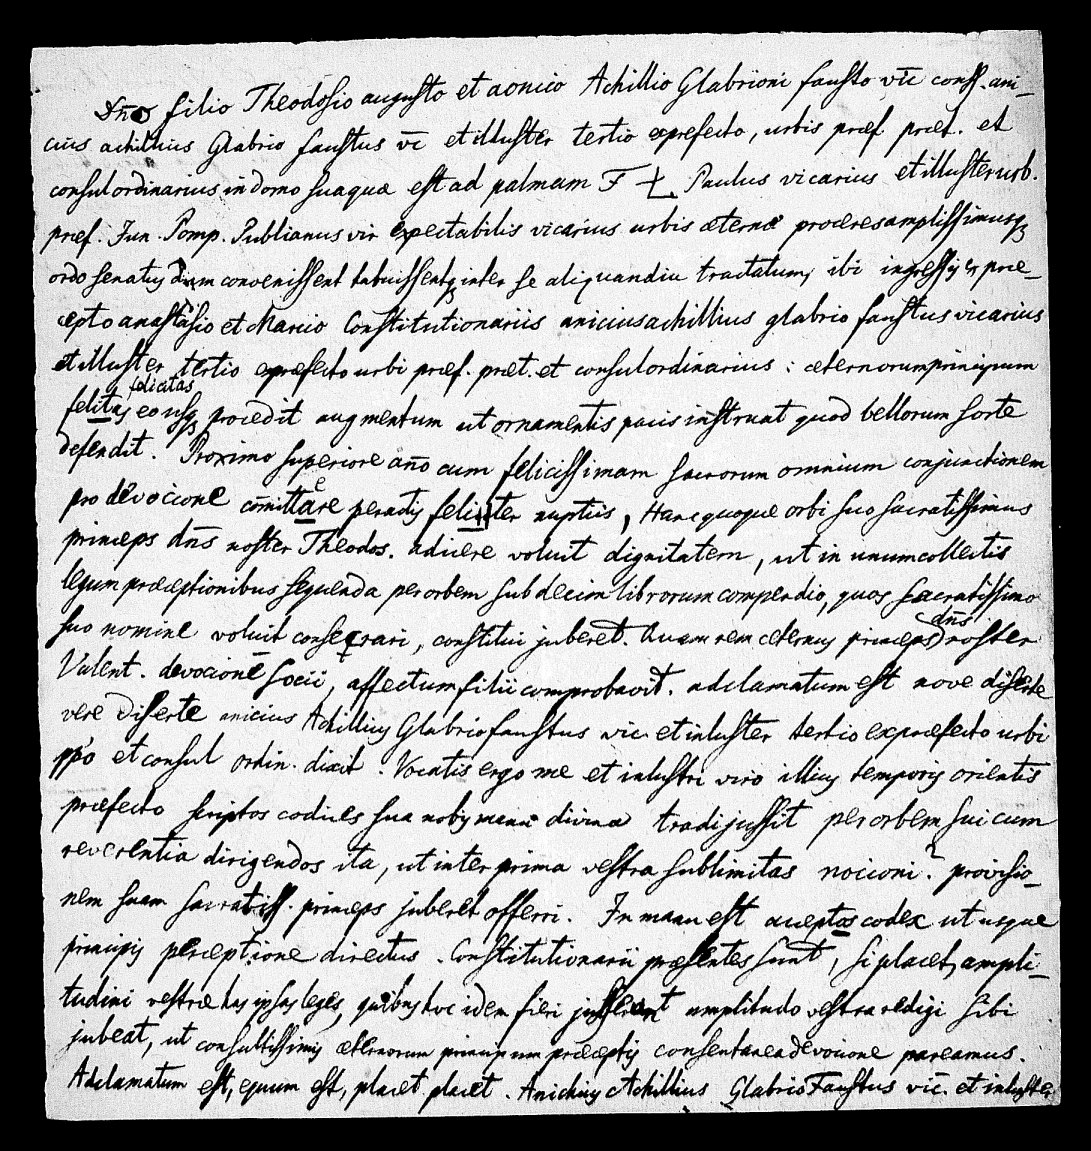 Dño filio Theodosio augusto et aonico Achillio Glabrioni fausto vīc conss. ani-
cius achillius Glabrio faustus vc et illuster tertio exprefecto, urbis præf præt. et
consul ordinarius in domo sua quæ est ad palmam F Paulus vicarius et illuster urb.
præf. Jun. Pomp. Publianus vir expectabilis vicarius urbis æternæ proceres amplissimusq
ordo senatus dum convenissent habuissentq inter se aliquandiu tractatum, ibi ingressis ex præ-
cepto anastasio et Marcio Constitutionariis anicius achillius glabrio faustus vicarius
et illuster tertio expræfecto urbi præf. præt. et consul ordinarius : æternorum principum
felicitas
felitas eo usq procedit augmentum ut ornamentis pacis instruat quod bellorum sorte
defendit. Proximo superiore año cum felicissimam sacrorum omnium conjunctionem
pro devocione comittare peractis feliciter nuptiis, Hanc quoque orbi suo sacratissimus
princeps dñs noster Theodos. adicere voluit dignitatem, ut in unum collectis
legum præceptionibus sequenda per orbem sub decim librorum compendio, quos sacratissimo
suo nomine voluit consecrari, constitui juberet. Quam rem æternus princeps dñs noster
Valent. devocione socii, affectum filii comprobavit. adclamatum est nove diserte
vere diserte anicius Achillius Glabrio faustus vic et inluster tertio expræfecto urbi
ppo et consul ordin. dixit. Vocatis ergo me et inlustri viro illius temporis orientis
præfecto scriptos codices sua nobis manu divina tradi jussit per orbem sui cum
reverentia dirigendos ita, ut inter prima vestra sublimitas nocioni? provisio-
nem suam sacratiss. princeps juberet offerri. In manu est aceptos codex ut usque
principis perceptione directus. Constitutionarii præsentes sunt, si placet, ampli-
tudini vestræ has ipsas leges, quibus hoc idem fieri jusserunt amplitudo vestra redigi sibi
jubeat, ut consultissimis æternorum principum præceptis consentanea devocione pareamus.
Adclamatum est, equum est, placet placet. Anichius Achillius Glabrio Faustus vīc. et inluster